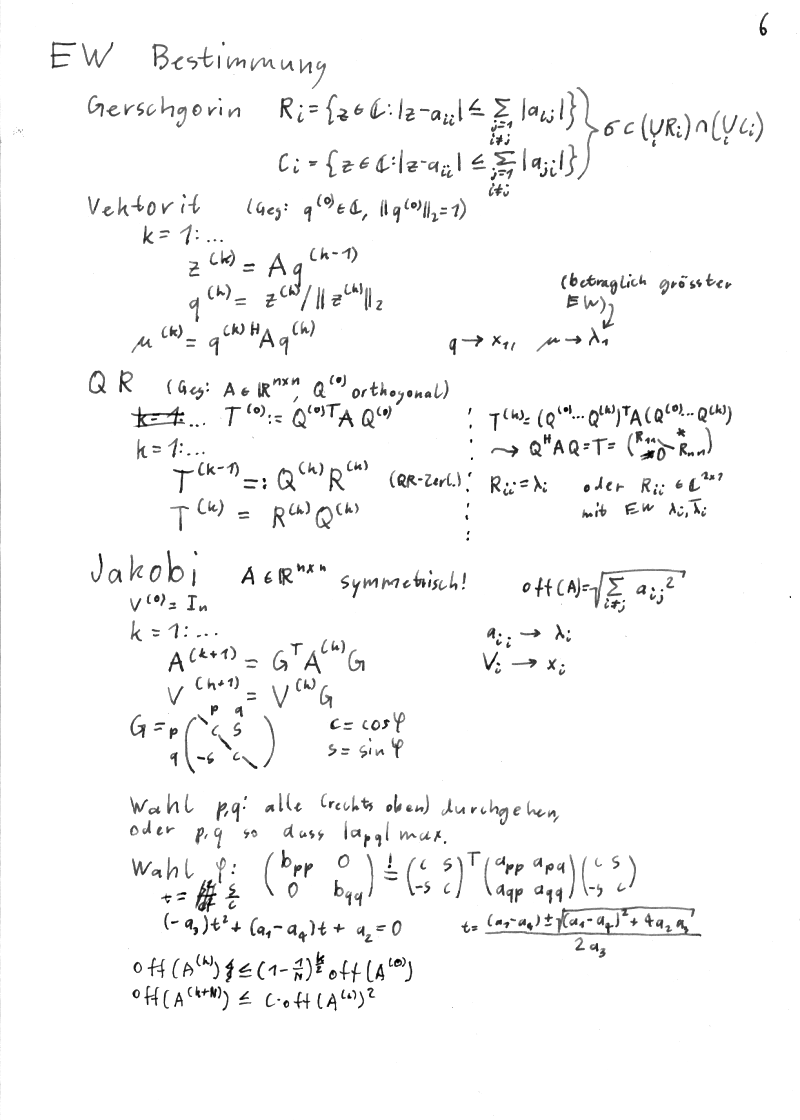 6
EW Bestimmung
Gerschgorin R_i = {z ∈ ℂ: |z-a_ii| ≤ Σ_{j=1, i≠j} |a_ij|}
C_i = {z ∈ ℂ: |z-a_ii| ≤ Σ_{j=1, i≠j} |a_ji|} } σ ⊂ (∪_i R_i) ∩ (∪_i C_i)
Vektorit (Geg: q^(0) ∈ ℂ, ||q^(0)||_2 = 1)
k = 1: ...
z^(k) = A q^(k-1)
q^(k) = z^(k) / || z^(k) ||_2
(betraglich grösster
EW)
μ^(k) = q^(k)H A q^(k) q → x_1, μ → λ_1
QR (Geg: A ∈ ℝ^{n×n}, Q^(0) orthogonal)
k = 1: ... T^(0) := Q^(0)T A Q^(0)
k = 1: ...
T^(k-1) =: Q^(k) R^(k) (QR-Zerl.)
T^(k) = R^(k) Q^(k)
T^(k) = (Q^(0) ... Q^(k))^T A (Q^(0) ... Q^(k))
⇝ Q^H A Q = T = (R_11 * 0 R_nn)
R_ii = λ_i oder R_ii ∈ ℂ^{2×2}
mit EW λ_i, λ̄_i
Jakobi A ∈ ℝ^{n×n} symmetrisch! off(A) = √(Σ_{i≠j} a_ij²)
V^(0) = I_n
k = 1: ... a_ii → λ_i
A^(k+1) = G^T A^(k) G V_i → x_i
V^(k+1) = V^(k) G
p q
G = p q ( c s -s c ) c = cos φ
s = sin φ
Wahl p,q: alle (rechts oben) durchgehen,
oder p,q so dass |a_pq| max.
Wahl φ: (b_pp 0 0 b_qq) =! (c s -s c)^T (a_pp a_pq a_qp a_qq) (c s -s c)
t = s/c
(-a_3)t² + (a_1-a_4)t + a_2 = 0 t = ((a_1-a_4) ± √((a_1-a_4)² + 4a_2 a_3)) / 2a_3
off(A^(k)) ≤ (1-1/N)^{k/2} off(A^(0))
off(A^(k+N)) ≤ C·off(A^(k))²